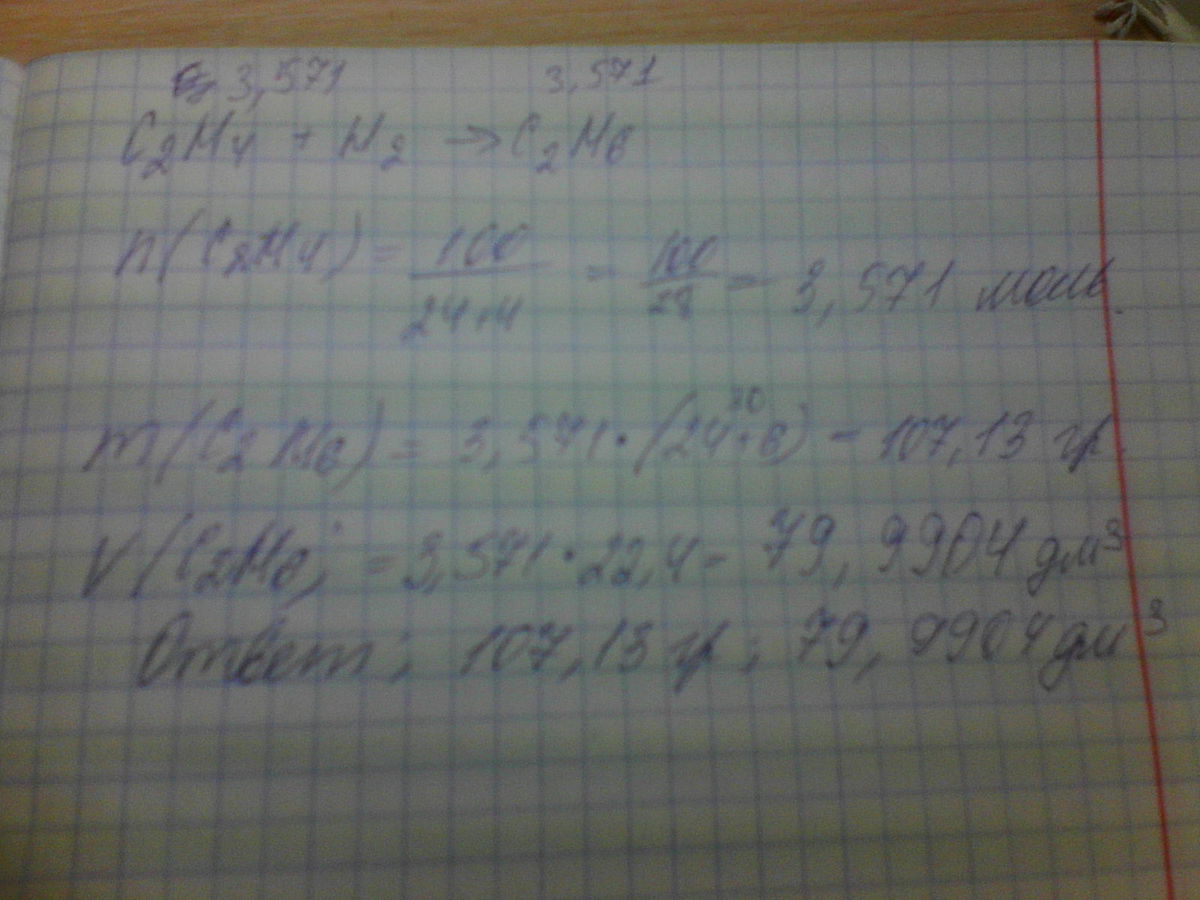 3,571 3,571
C₂H₄ + H₂ → C₂H₆
n(C₂H₄) = 100/24+4 = 100/28 = 3,571 моль.
30
m(C₂H₆) = 3,571 · (24+6) = 107,13 гр.
V(C₂H₆) = 3,571 · 22,4 = 79,9904 дм³
Ответ: 107,13 гр; 79,9904 дм³